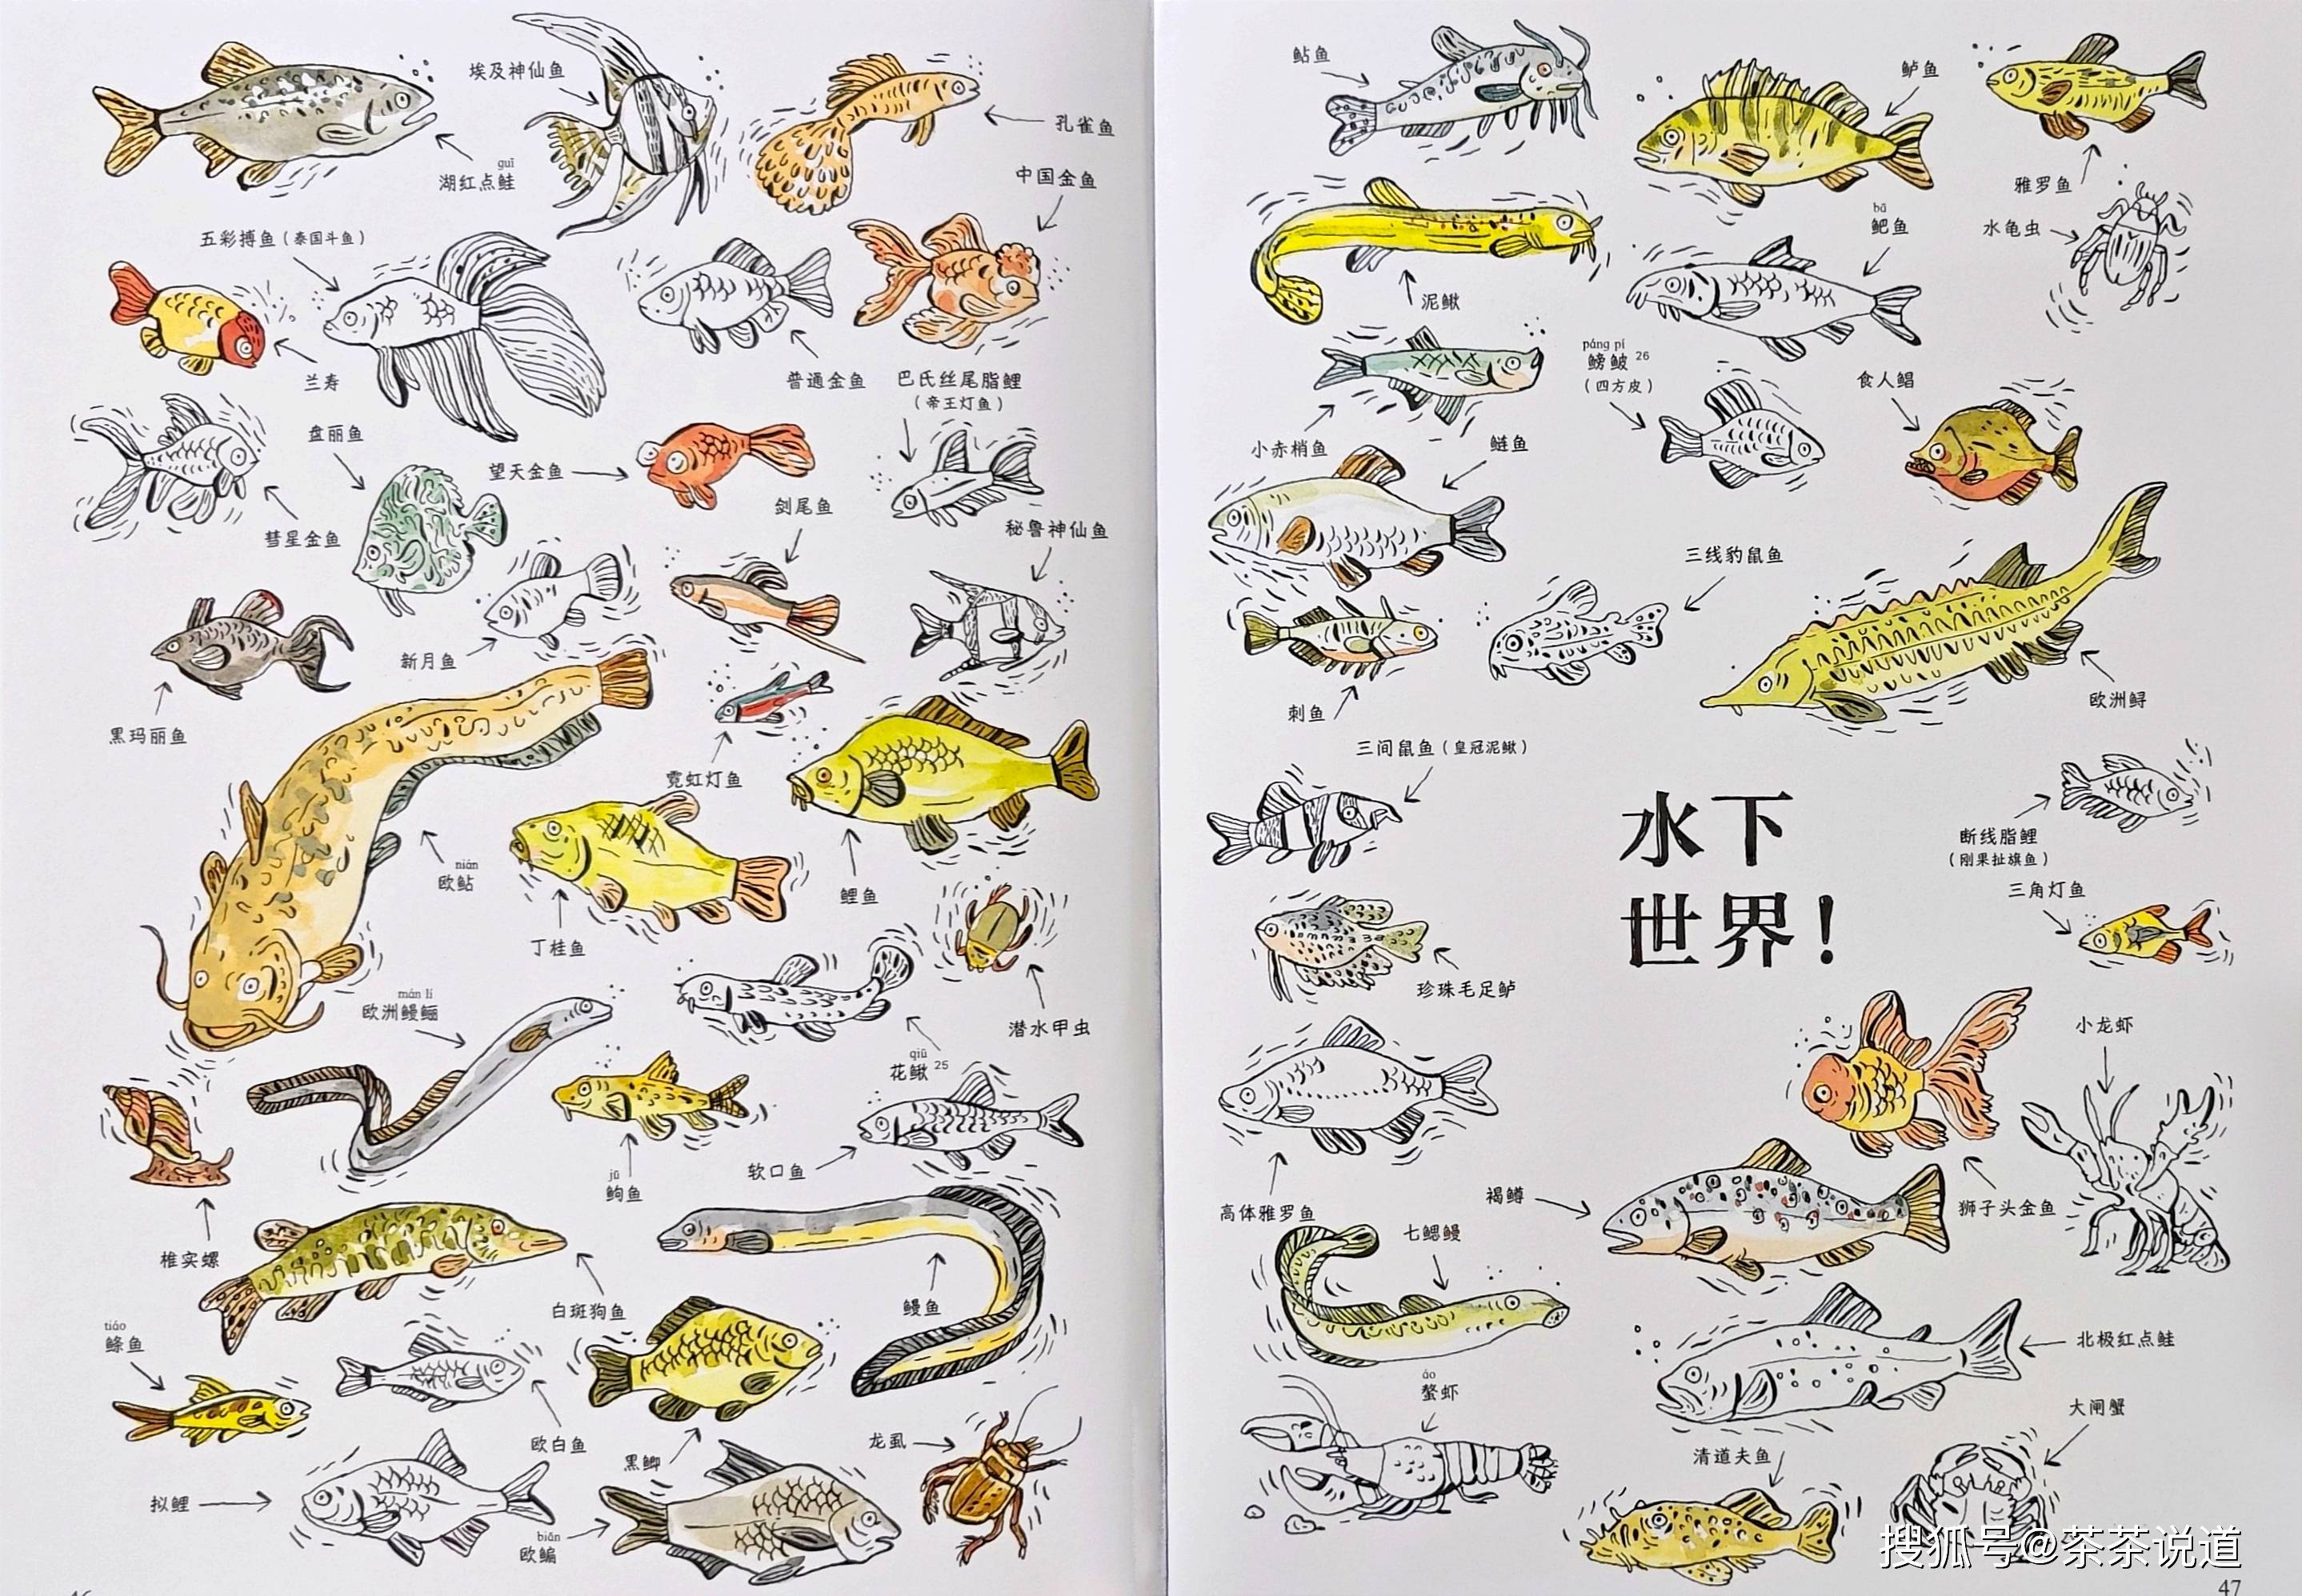 guī
湖红点鲑
埃及神仙鱼
孔雀鱼
中国金鱼
五彩搏鱼（泰国斗鱼）
兰寿
普通金鱼
巴氏丝尾脂鲤
（帝王灯鱼）
盘丽鱼
望天金鱼
剑尾鱼
彗星金鱼
秘鲁神仙鱼
新月鱼
黑玛丽鱼
霓虹灯鱼
nián
欧鲇
鲤鱼
丁桂鱼
mán lí
欧洲鳗鲡
潜水甲虫
qiū
花鳅 25
软口鱼
jū
鮈鱼
椎实螺
白斑狗鱼
鳗鱼
tiáo
鲦鱼
欧白鱼
黑鲫
龙虱
拟鲤
biān
欧鳊
46
鲇鱼
鲈鱼
雅罗鱼
bā
鲃鱼
水龟虫
泥鳅
páng pí
鳑鲏 26
（四方皮）
食人鲳
小赤梢鱼
鲢鱼
三线豹鼠鱼
刺鱼
欧洲鲟
三间鼠鱼（皇冠泥鳅）
水下
世界！
断线脂鲤
（刚果扯旗鱼）
三角灯鱼
珍珠毛足鲈
小龙虾
高体雅罗鱼
褐鳟
狮子头金鱼
七鳃鳗
北极红点鲑
áo
螯虾
大闸蟹
清道夫鱼
搜狐号@茶茶说道
47